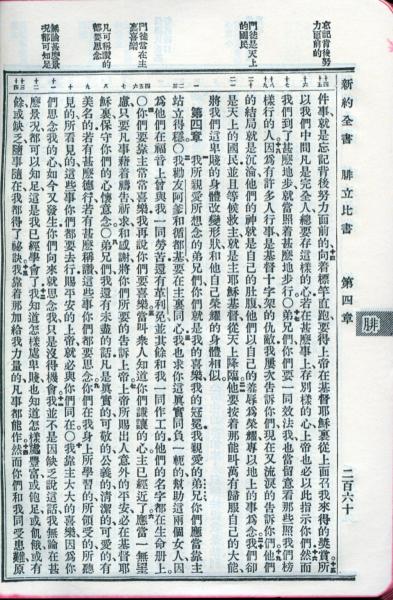 新約全書 腓立比書 第四章 二百六十
腓
忘記背後努
力面前的
門徒是天上
的國民
門徒當在主
裏喜樂
凡可稱讚的
都要思念
無論甚麼景
況都可知足
件事就是忘記背後努力面前的向着標竿直跑要得上帝在基督耶穌裏從上面召我來得的獎賞所
以我們中間凡是完全人總要存這樣的心若在甚麼事上存別樣的心上帝也必以此指示你們然而
我們到了甚麼地步就當照着甚麼地步行○弟兄們你們要一同效法我也當留意看那些照我們榜
樣行的人因爲有許多人行事是基督十字架的仇敵我屢次告訴你們現在又流淚的告訴你們他們
的結局就是沉淪他們的神就是自己的肚腹他們以自己的羞辱爲榮耀專以地上的事爲念我們卻
是天上的國民並且等候救主就是主耶穌基督從天上降臨他要按着那能叫萬有歸服自己的大能
將我們這卑賤的身體改變形狀和他自己榮耀的身體相似
第四章 我所親愛所想念的弟兄們你們就是我的喜樂我的冠冕我親愛的弟兄你們應當靠主
站立得穩○我勸友阿爹和循都基要在主裏同心我也求你這眞實同負一軛的幫助這兩個女人因
爲他們在福音上曾與我一同勞苦還有革利免並其餘和我一同作工的他們的名字都在生命册上
○你們要靠主常常喜樂我再說你們要喜樂當叫衆人知道你們謙讓的心主已經近了應當一無罣
慮只要凡事藉着禱告祈求和感謝將你們所要的告訴上帝上帝所賜出人意外的平安必在基督耶
穌裏保守你們的心懷意念○弟兄們我還有未盡的話凡是眞實的可敬的公義的清潔的可愛的有
美名的若有甚麼德行若有甚麼稱讚這些事你們都要思念你們在我身上所學習的所領受的所聽
見的所看見的這些事你們都要去行賜平安的上帝就必與你們同在○我靠主大大的喜樂因爲你
們思念我的心如今又發生你們向來就思念我只是沒得機會我並不是因缺乏說這話我無論在甚
麼景況都可以知足這是我已經學會了我知道怎樣處卑賤也知道怎樣處豐富或飽足或飢餓或有
餘或缺乏隨事隨在我都得了祕訣我靠着那加給我力量的凡事都能作然而你們和我同受患難原